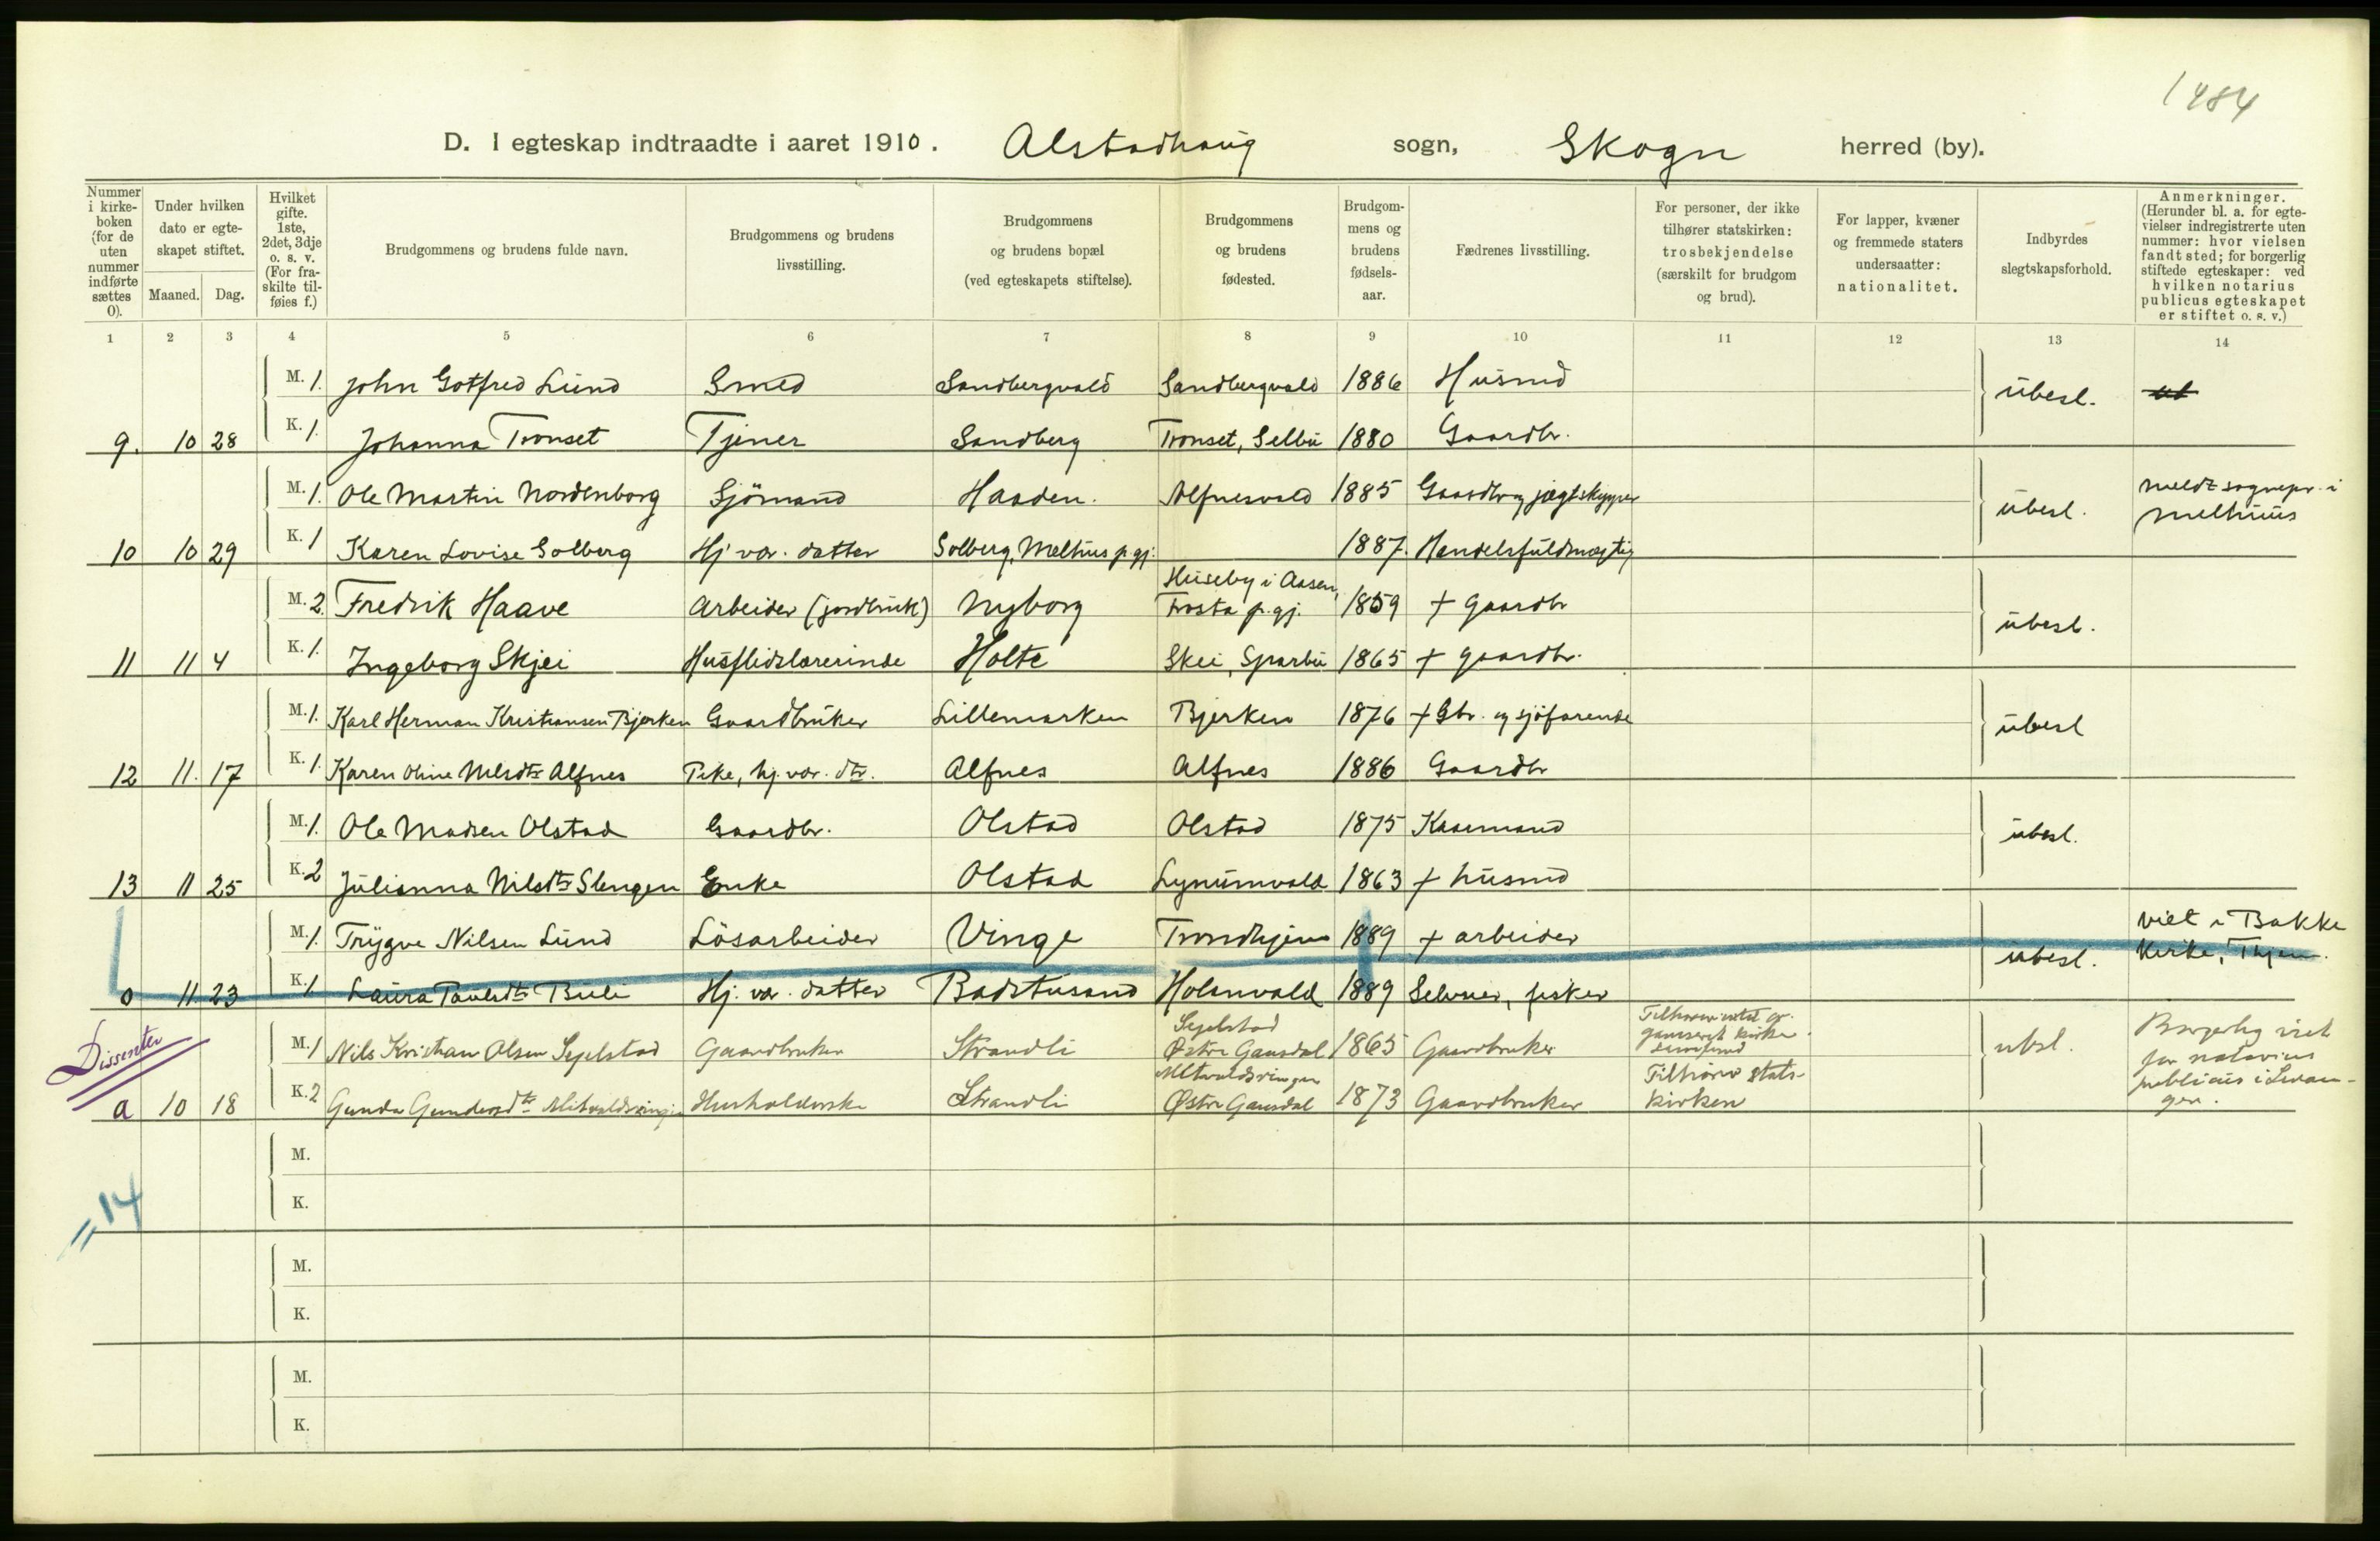 1484
D. I egteskap indtraadte i aaret 1910. Alstadhaug sogn, Skogn herred (by).
Nummer i kirkeboken (for de uten nummer indførte sættes 0).
Under hvilken dato er egteskapet stiftet.
Maaned. Dag.
Hvilket gifte. 1ste, 2det, 3dje o. s. v. (For fraskilte tilføies f.)
Brudgommens og brudens fulde navn.
Brudgommens og brudens livsstilling.
Brudgommens og brudens bopæl (ved egteskapets stiftelse).
Brudgommens og brudens fødested.
Brudgommens og brudens fødselsaar.
Fædrenes livsstilling.
For personer, der ikke tilhører statskirken: trosbekjendelse (særskilt for brudgom og brud).
For lapper, kvæner og fremmede staters undersaatter: nationalitet.
Indbyrdes slegtskapsforhold.
Anmerkninger. (Herunder bl. a. for egtevielser indregistrerte uten nummer: hvor vielsen fandt sted; for borgerlig stiftede egteskaper: ved hvilken notarius publicus egteskapet er stiftet o. s. v.)
1 2 3 4 5 6 7 8 9 10 11 12 13 14
M. 1. John Gotfred Lund Smed Sandbergvald Sandbergvald 1886 Husmd übesl.
9. 10 28 K. 1. Johanna Tronset Tjener Sandberg Tronset, Selbu 1880 Gaardbr.
M. 1. Ole Martin Nordenborg Sjömand Haaden. Alfnesvald 1885 Gaardbr og jægtskypper übesl. meldt sognepr. i Melhuus
10 10 29 K. 1 Karen Lovise Solberg Hj vær. datter Solberg, Melhus p.gj. 1887. Handelsfuldmægtig
M. 2. Fredrik Haave Arbeider (jordbruk) Nyborg Huseby i Aasen, Frosta p.gj. 1859 + Gaardbr übesl.
11 11 4 K. 1. Ingeborg Skjei Husflidslærerinde Holte Skei, Sparbu 1865 + gaardbr.
M. 1. Karl Herman Kristiansen Bjerken Gaardbruker Lillemarken Bjerken 1876 + Gbr. og sjöfarende übesl
12 11. 17 K. 1. Karen Oline Nelsdtr Alfnes Pike, hj. vær. dtr. Alfnes Alfnes 1886 Gaardbr
M. 1. Ole Madsen Olstad Gaardbr. Olstad Olstad 1875 Kaarmand übesl.
13 11 25 K. 2 Julianna Nilsdtr Slengen Enke Olstad Lynumvald 1863 + husmd
M. 1. Trygve Nilsen Lund Lösarbeider Vinge Trondhjem 1889 + arbeider übesl. viet i Bakke Kirke, Thjem.
0 11 23 K. 1 Laura Paulsdtr Buli Hj. vær. datter Badstusand Holanvald 1889 Selveier, fisker
Dissenter
M. 1 Nils Kristian Olsen Segelstad Gaardbruker Strandli Segelstad Østre Gausdal 1865 Gaardbruker ubsl. Borgerlig viet for notarius publicus i Levanger.
a 10 18 K. 2 Gunda Gundersdtr Strandli Østre Gausdal 1873 Gaardbruker Tilhører statskirken
=14
M.
K.
M.
K.
M.
K.